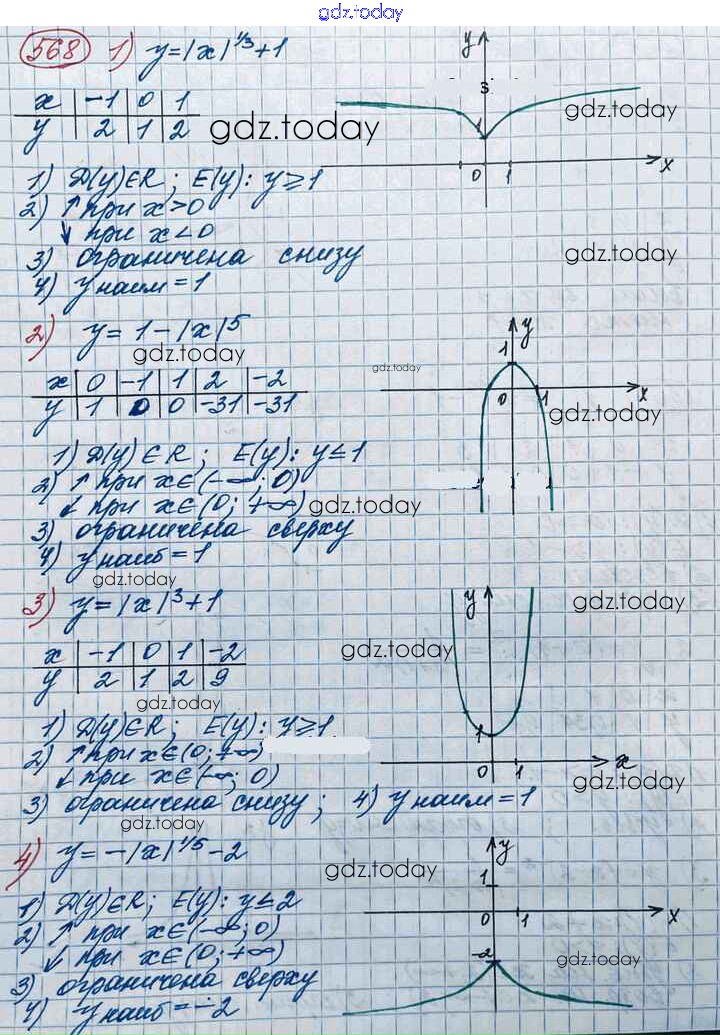 gdz.today
568 1) y=|x|^1/3+1
x -1 0 1
y 2 1 2
gdz.today
y
3
1
0 1 x
gdz.today
1) D(y)∈R; E(y): y≥1
2) ↑ при x>0
↓ при x<0
3) ограничена снизу
gdz.today
4) y наим=1
2) y=1-|x|^5
gdz.today
x 0 -1 1 2 -2
y 1 0 0 -31 -31
gdz.today
y
1
0 1 x
gdz.today
1) D(y)∈R; E(y): y≤1
2) ↑ при x∈(-∞; 0)
↓ при x∈(0; +∞)
gdz.today
3) ограничена сверху
4) y наиб=1
gdz.today
3) y=|x|^3+1
gdz.today
x -1 0 1 -2
y 2 1 2 9
gdz.today
gdz.today
y
1
0 1 x
gdz.today
1) D(y)∈R; E(y): y≥1
2) ↑ при x∈(0; +∞)
↓ при x∈(-∞; 0)
3) ограничена снизу; 4) y наим=1
gdz.today
4) y=-|x|^1/5-2
gdz.today
y
1
0 1 x
-2
gdz.today
1) D(y)∈R; E(y): y≤2
2) ↑ при x∈(-∞; 0)
↓ при x∈(0; +∞)
3) ограничена сверху
4) y наиб=-2